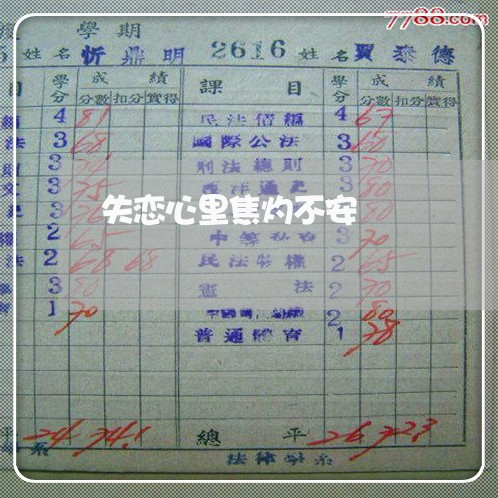 7788.com
學期
姓名 忻鼎明 2616 姓名 賈泰德
目 學分 成績 課目 學分 成績
分數 扣分 實得 分數 扣分 實得
4 81 民法債編 4 67
法 3 68 國際公法 3 60
3 刑法總則 3 70
3 75 西洋通史 3 80
失恋心里焦灼不安
2 65 3 70
法 2 68 68 民法物權 2 65
3 80 憲法 2 70
1 70 2 80
普通體育 1 78
平 24 74.1 總平 26 72.3
系 法律學系